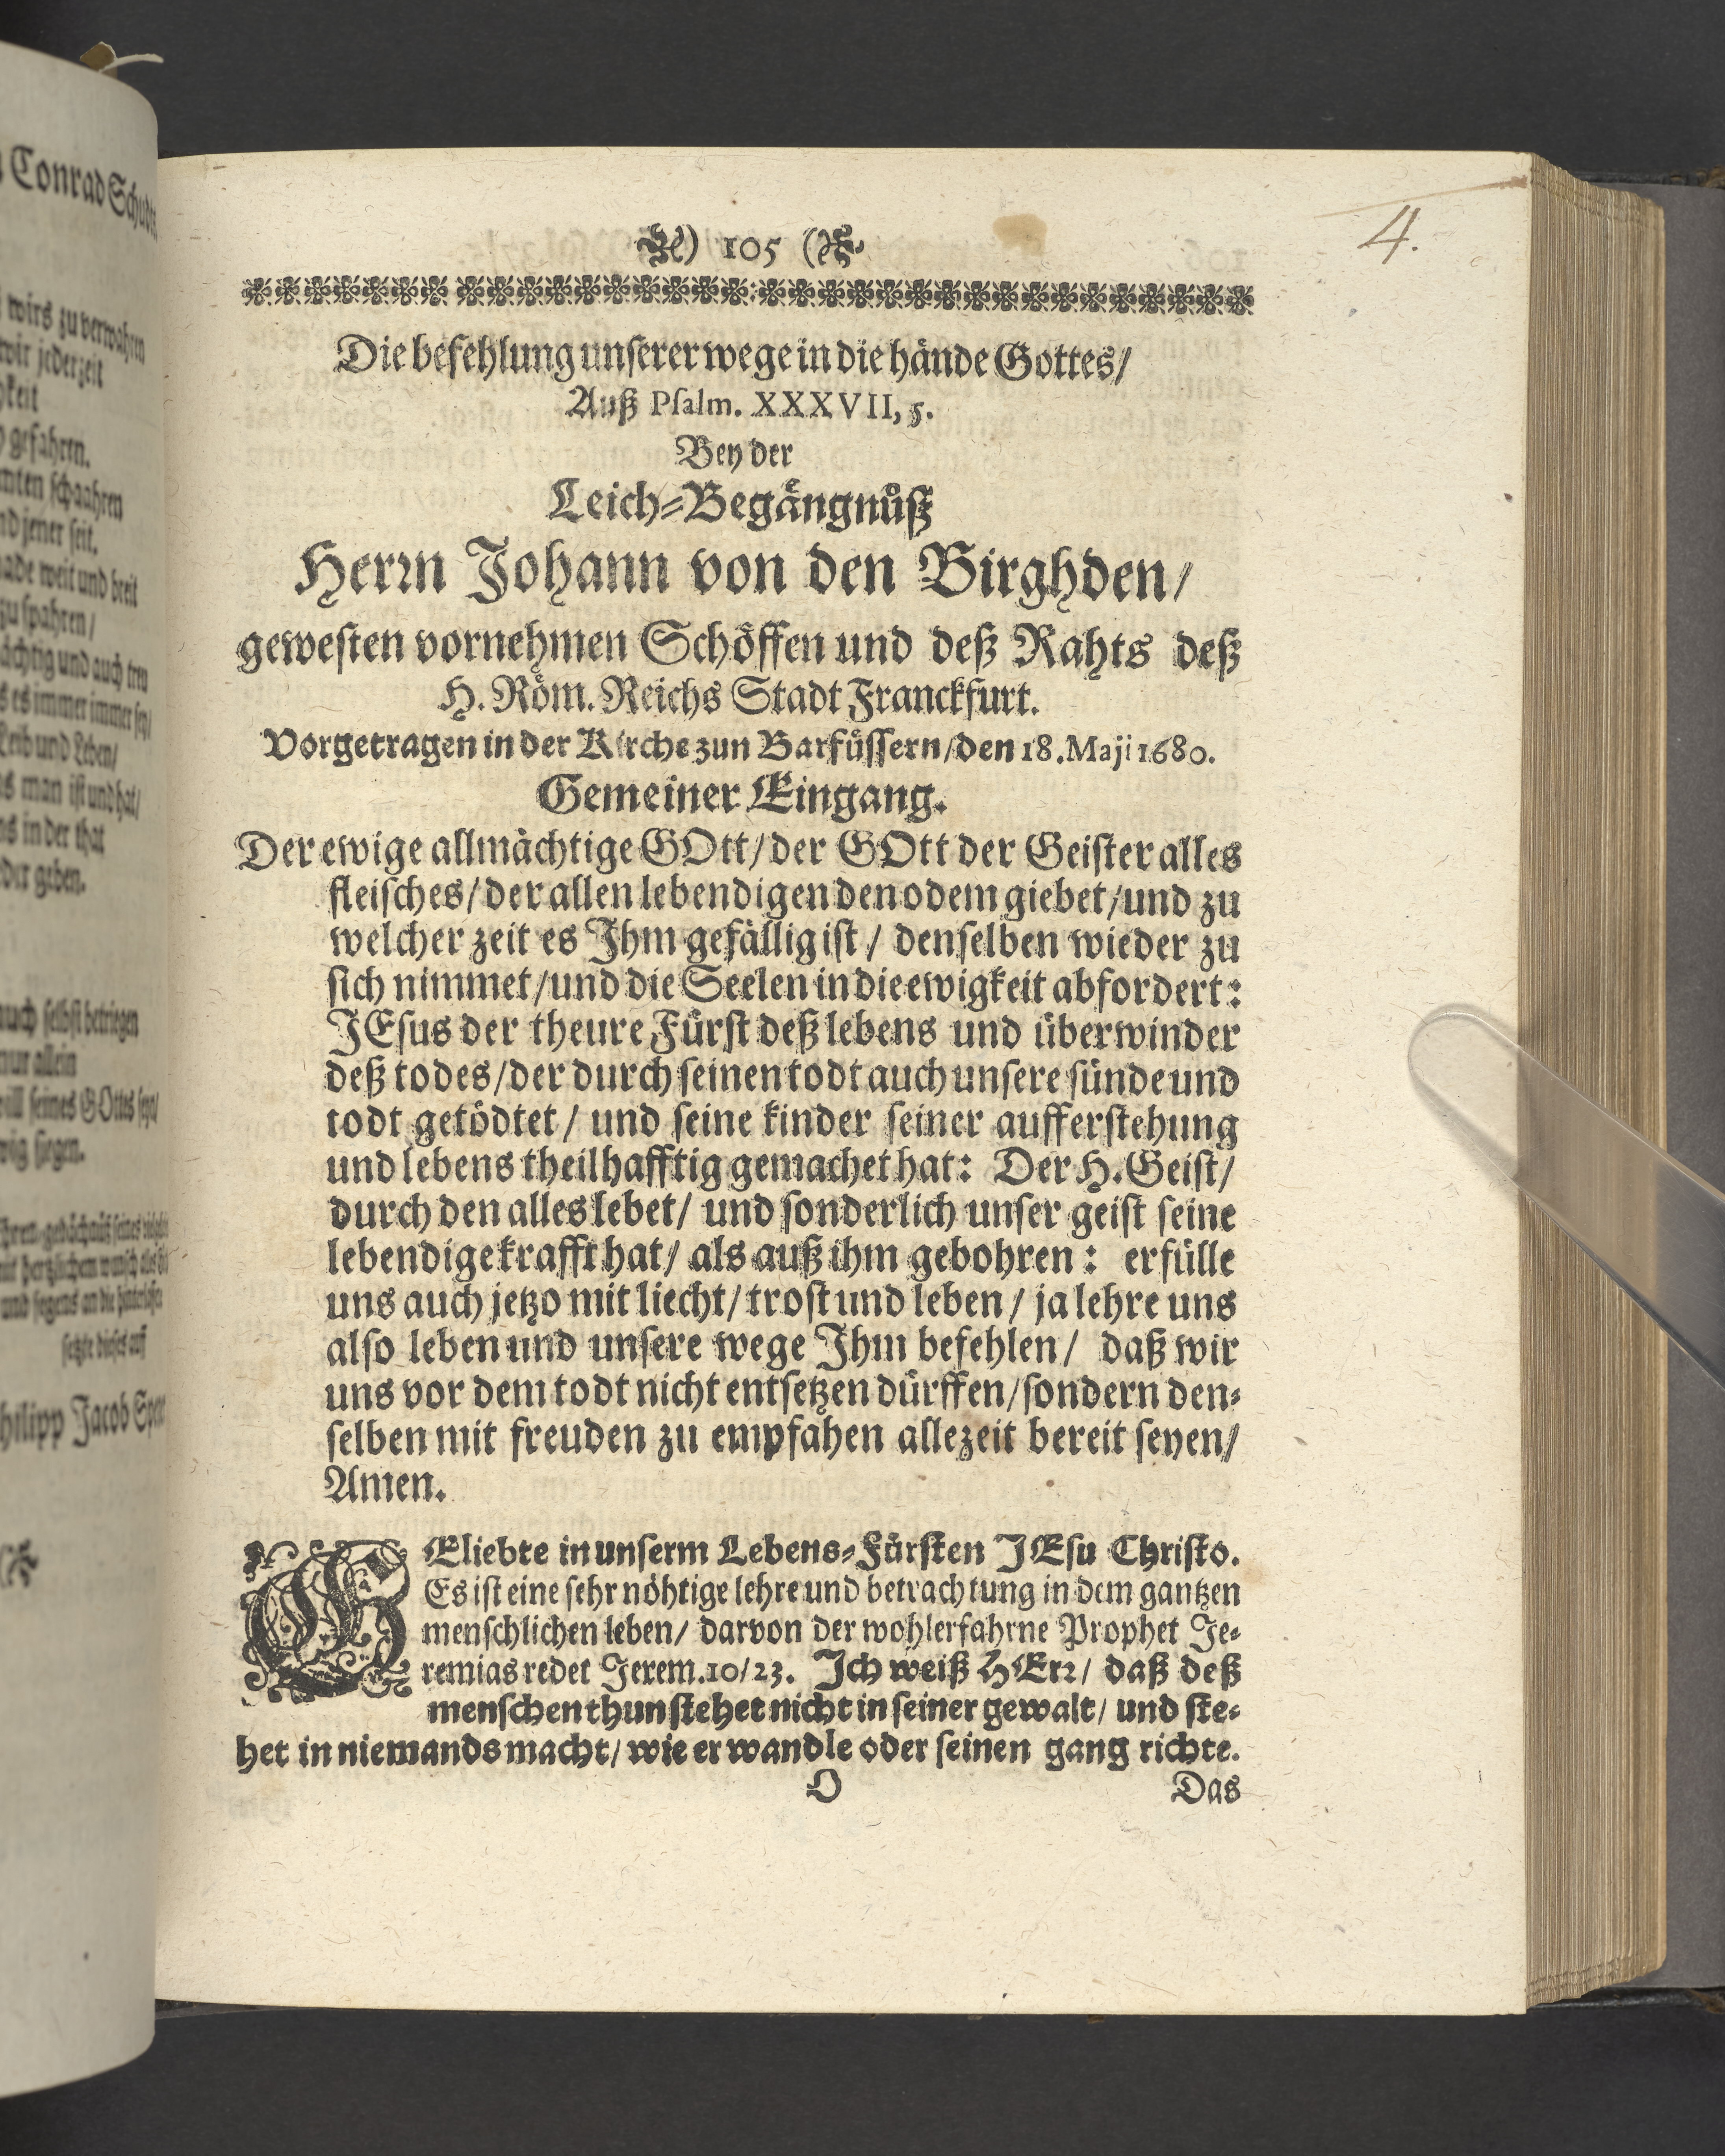 Conrad Schudt
wirs zu verwahren
wir jederzeit
gefahren.
schaahren
nd jener seit.
weit und breit
zu spahren/
und auch treu
es immer immer sey/
Leib und Leben/
man ist und hat/
in der that
geben.
auch selbst betriegen
nur allein
seines GOtts sey/
siegen.
setzte dieses auf
Philipp Jacob Spener
4.
) 105 (
Die befehlung unserer wege in die hände Gottes/
Auß Psalm. XXXVII, 5.
Bey der
Leich-Begängnüß
Herrn Johann von den Birghden/
gewesten vornehmen Schöffen und deß Rahts deß
H. Röm. Reichs Stadt Franckfurt.
Vorgetragen in der Kirche zun Barfüssern/ den 18. Maji 1680.
Gemeiner Eingang.
Der ewige allmächtige GOtt/ der GOtt der Geister alles
fleisches/ der allen lebendigen den odem giebet/ und zu
welcher zeit es Ihm gefällig ist/ denselben wieder zu
sich nimmet/ und die Seelen in die ewigkeit abfordert:
JEsus der theure Fürst deß lebens und überwinder
deß todes/ der durch seinen todt auch unsere sünde und
todt getödtet/ und seine kinder seiner aufferstehung
und lebens theilhafftig gemachet hat: Der H. Geist/
durch den alles lebet/ und sonderlich unser geist seine
lebendige krafft hat/ als auß ihm gebohren: erfülle
uns auch jetzo mit liecht/ trost und leben/ ja lehre uns
also leben und unsere wege Ihm befehlen/ daß wir
uns vor dem todt nicht entsetzen dürffen/ sondern den-
selben mit freuden zu empfahen allezeit bereit seyen/
Amen.
GEliebte in unserm Lebens-Fürsten JEsu Christo.
Es ist eine sehr nöhtige lehre und betrachtung in dem gantzen
menschlichen leben/ darvon der wohlerfahrne Prophet Je-
remias redet Jerem. 10/23. Ich weiß HErr/ daß deß
menschen thun stehet nicht in seiner gewalt/ und ste-
het in niemands macht/ wie er wandle oder seinen gang richte.
O Das